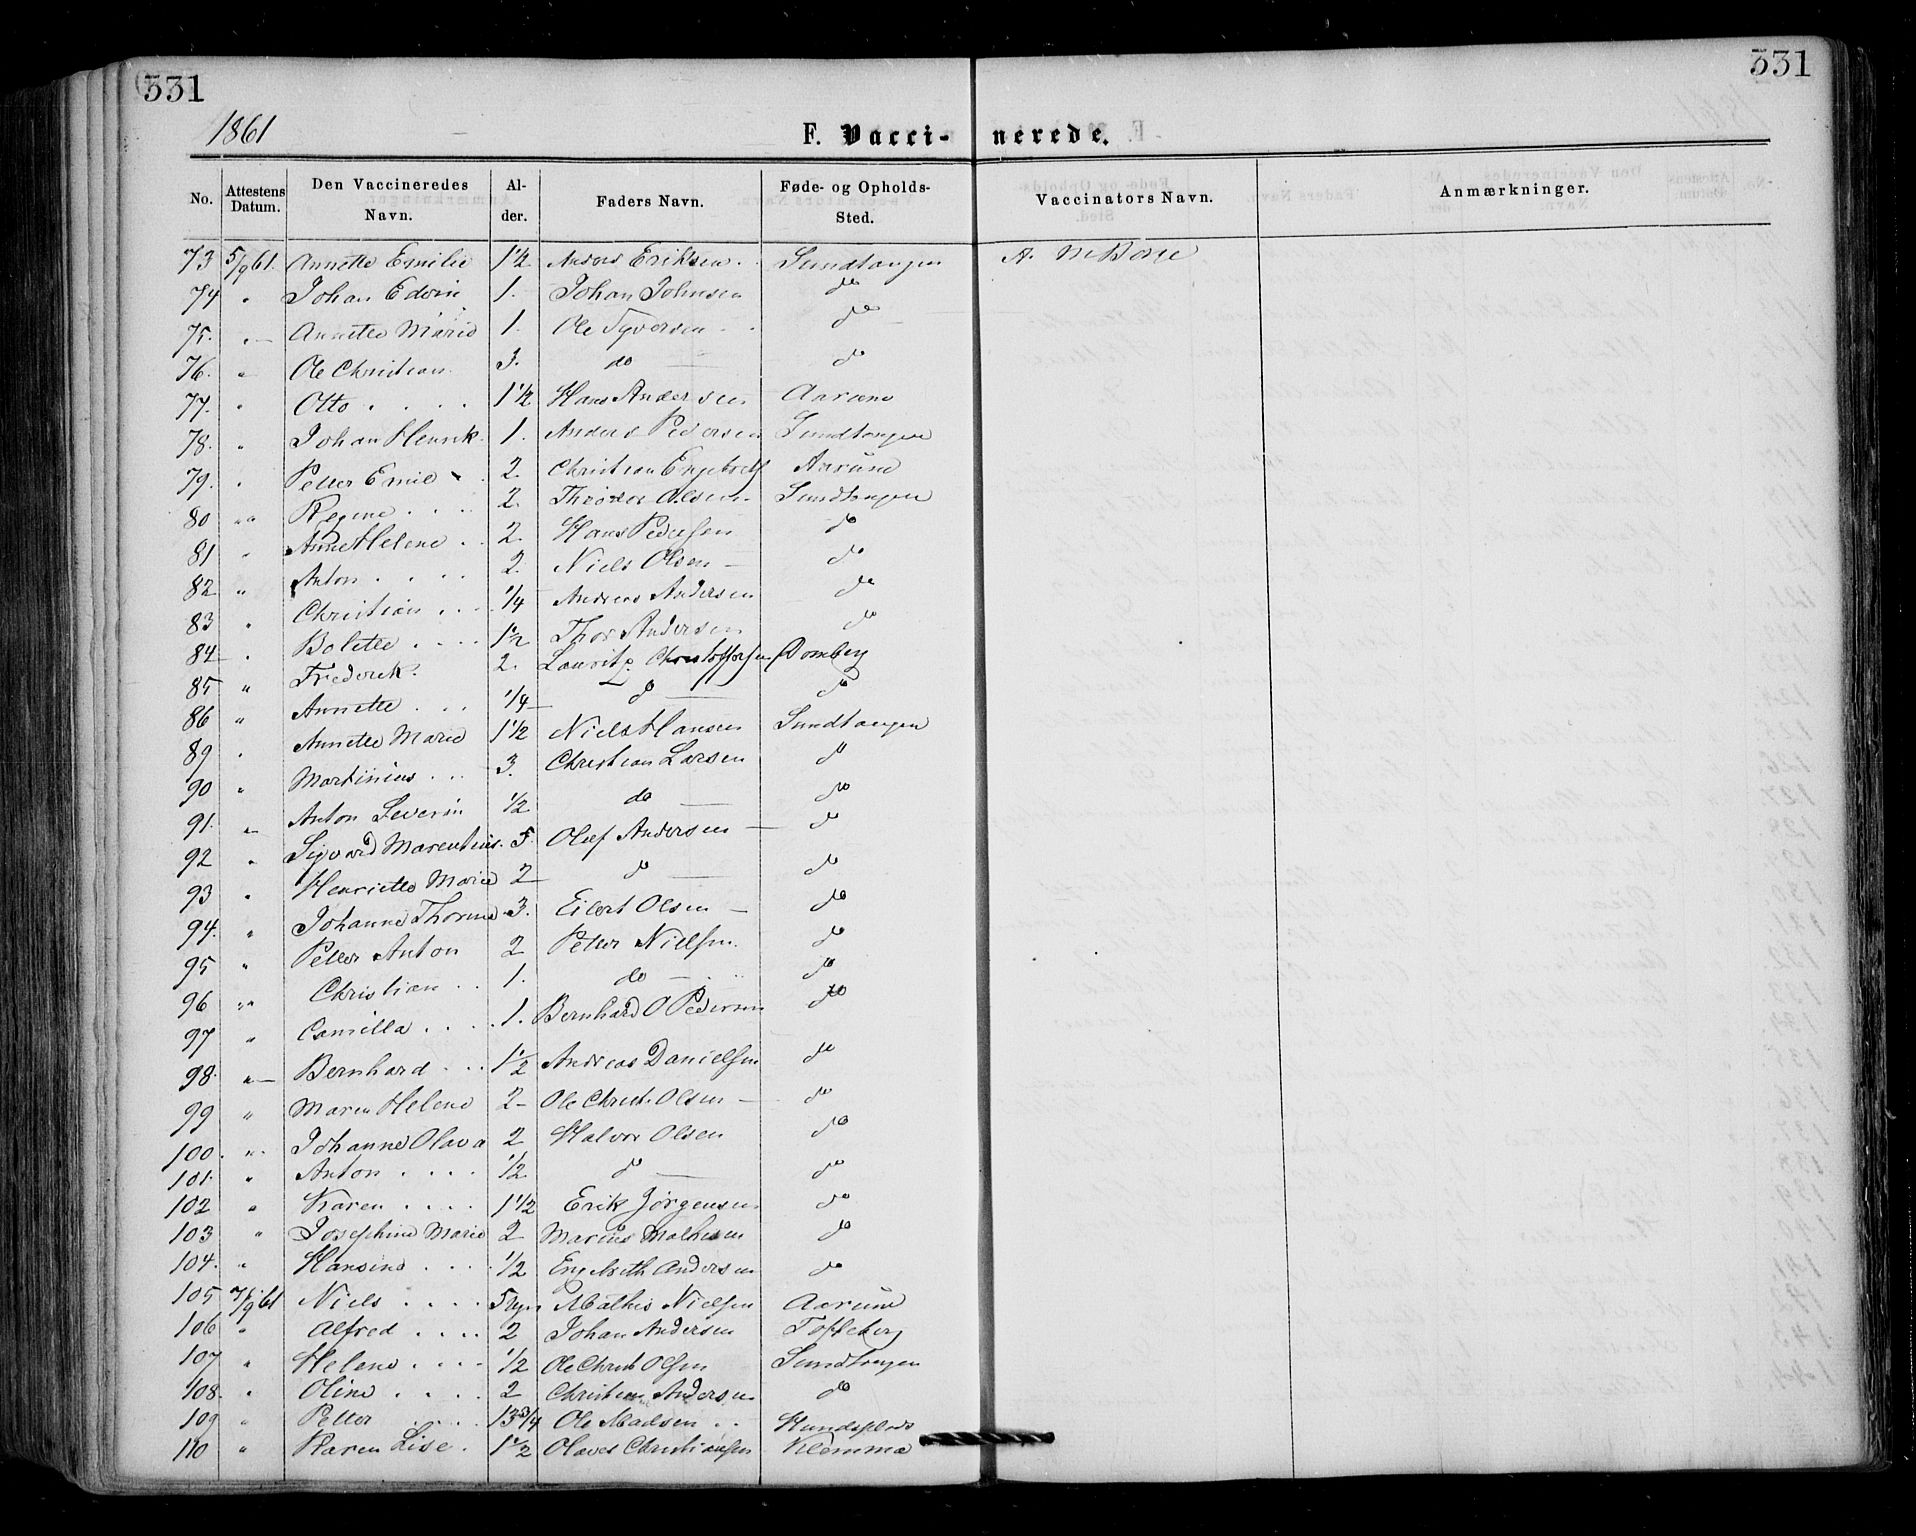 331 331
1861
F. Vaccinerede.
No. Attestens Datum. Den Vaccineredes Navn. Alder. Faders Navn. Føde- og Opholds-Sted. Vaccinators Navn. Anmærkninger.
73 5/9 61. Annette Emilie 1 1/2 Anders Eriksen Sundtangen A. M
74 " Johan Edvin 1. Johan Johnsen do
75. " Annette Marie 1. Ole Syversen do
76. " Ole Christian 3. do do
77. " Otto 1 1/2 Hans Andersen Aarum
78. " Johan Henrik 1. Anders Pedersen Sundtangen
79. " Petter Emil 2. Christian Aarum
80 " Regine 2. Olsen Sundtangen
81 " Anne Helene 2. Hans Pedersen do
82 " Anton 2. Niels Olsen do
83 " Christian 1/4 Andreas Andersen do
84 " Bolette 1 1/2 Thor Andersen do
85 " Frederik 2. Lauritz Christoffersen
86 " Annette 1/4 do do
89 " Annette Marie 1 1/2 Niels Hansen Sundtangen
90 " Martinius 3. Christian Larsen do
91. " Anton Severin 1/2 do do
92 " Sigvard Marentius. 5. Oluf Andersen do
93 " Henriette Marie 2 do do
94. " Johanne 3. Eilert Olsen do
95 " Petter Anton 2 Petter Nielsen do
96 " Christian 1. do do
97 " Camilla 1. Bernhard O Pedersen do
98. " Bernhard 1 1/2 Andreas Danielsen do
99 " Maren Helene 2 Ole Christ. Olsen do
100. " Johanne Olava 2 Halvor Olsen do
101. " Anton 1/2 do do
102 " Karen 1 1/2 Erik Jørgensen do
103 " Josephine Marie 2 Marius Mathisen do
104. " Hansine 1/2 Engebreth Andersen do
105 7/9 61 Niels 5 Mathis Nielsen Aarum
106 " Alfred 2 Johan Andersen Tofteberg
107 " Helene 1/2 Ole Christ Olsen Sundtangen
108. " Oline 2 Christian Andersen do
109 " Petter 1 3/4 Ole Madsen
110 " Karen Lise. 1 1/2 Olaves Christiansen Klemma